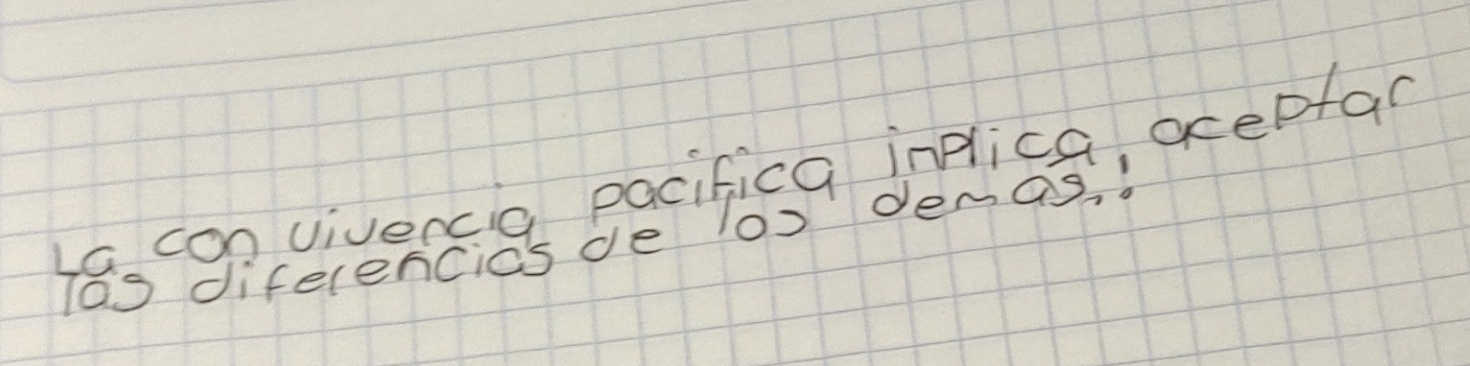 La con vivencia pacifica inplica, aceptar
las diferencias de los demas..